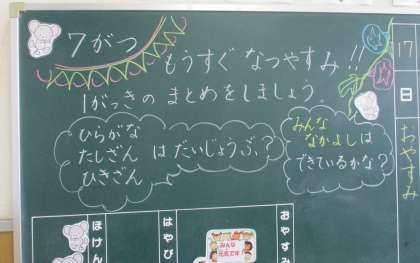 7がつ
もうすぐ なつやすみ!!
1がっきの まとめをしましょう。
ひらがな
たしざん は だいじょうぶ?
ひきざん
みんな
なかよしは
できているかな?
17
日
おやすみ
ほけん
はやび
おやすみ
みんな
元気です